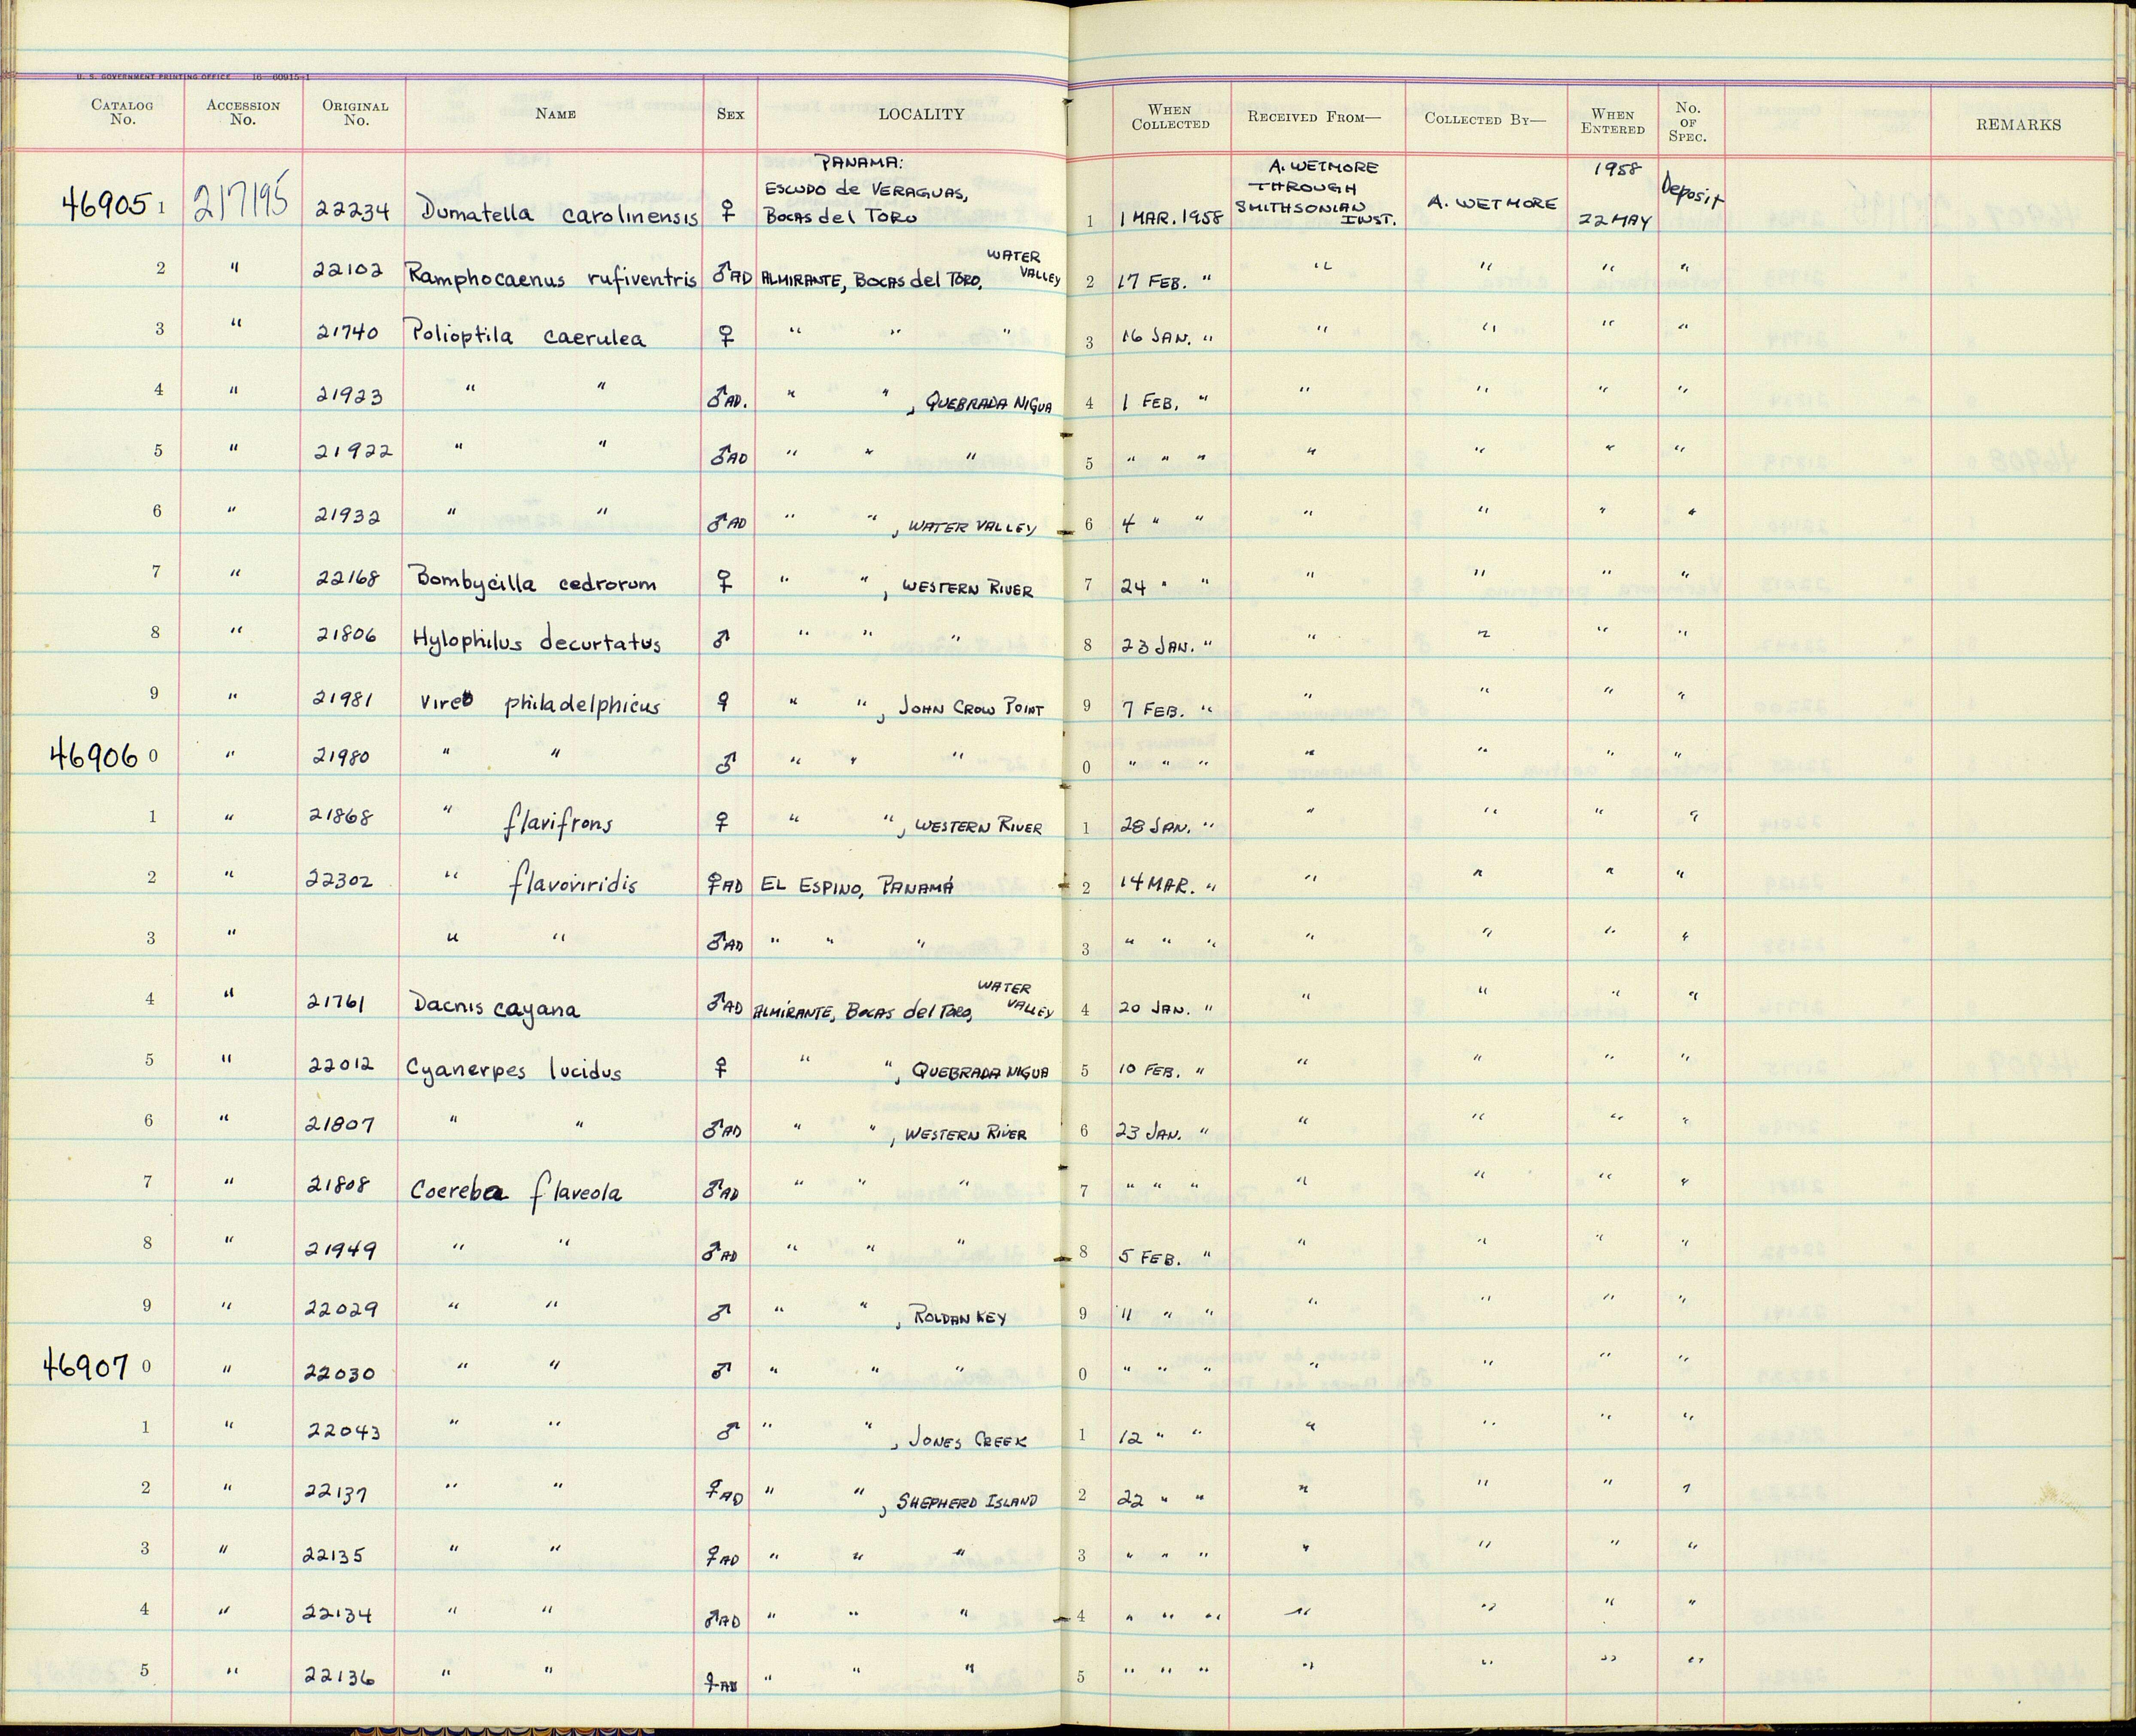 U. S. GOVERNMENT PRINTING OFFICE 16—60915-1
CATALOG No. ACCESSION No. ORIGINAL No. NAME SEX LOCALITY WHEN COLLECTED RECEIVED FROM— COLLECTED BY— WHEN ENTERED No. OF SPEC. REMARKS
PANAMA: A. WETMORE 1958
ESCUDO de VERAGUAS, THROUGH Deposit
46905 1 217195 22234 Dumatella carolinensis ♀ BOCAS del TORO 1 1 MAR. 1958 SMITHSONIAN INST. A. WETMORE 22 MAY
2 " 22102 Ramphocaenus rufiventris ♂AD ALMIRANTE, BOCAS del TORO, WATER VALLEY 2 17 FEB. " " " " "
3 " 21740 Polioptila caerulea ♀ " " " 3 16 JAN. " " " " "
4 " 21923 " " ♂AD. " " , QUEBRADA NIGUA 4 1 FEB. " " " " "
5 " 21922 " " ♂AD " " " 5 " " " " " " "
6 " 21932 " " ♂AD " " , WATER VALLEY 6 4 " " " " " "
7 " 22168 Bombycilla cedrorum ♀ " " , WESTERN RIVER 7 24 " " " " " "
8 " 21806 Hylophilus decurtatus ♂ " " " 8 23 JAN. " " " " "
9 " 21981 Vireo philadelphicus ♀ " " , JOHN CROW POINT 9 7 FEB. " " " " "
46906 0 " 21980 " " ♂ " " " 0 " " " " " " "
1 " 21868 " flavifrons ♀ " " , WESTERN RIVER 1 28 JAN. " " " " "
2 " 22302 " flavoviridis ♀AD EL ESPINO, PANAMÁ 2 14 MAR. " " " " "
3 " " " ♂AD " " " 3 " " " " " " "
4 " 21761 Dacnis cayana ♂AD ALMIRANTE, BOCAS del TORO, WATER VALLEY 4 20 JAN. " " " " "
5 " 22012 Cyanerpes lucidus ♀ " " , QUEBRADA NIGUA 5 10 FEB. " " " " "
6 " 21807 " " ♂AD " " , WESTERN RIVER 6 23 JAN. " " " " "
7 " 21808 Coereba flaveola ♂AD " " " 7 " " " " " " "
8 " 21949 " " ♂AD " " " 8 5 FEB. " " " " "
9 " 22029 " " ♂ " " , ROLDAN KEY 9 11 " " " " " "
46907 0 " 22030 " " ♂ " " " 0 " " " " " " "
1 " 22043 " " ♂ " " , JONES CREEK 1 12 " " " " " "
2 " 22137 " " ♀AD " " , SHEPHERD ISLAND 2 22 " " " " " "
3 " 22135 " " ♀AD " " " 3 " " " " " " "
4 " 22134 " " ♂AD " " " 4 " " " " " " "
5 " 22136 " " ♀AD " " " 5 " " " " " " "